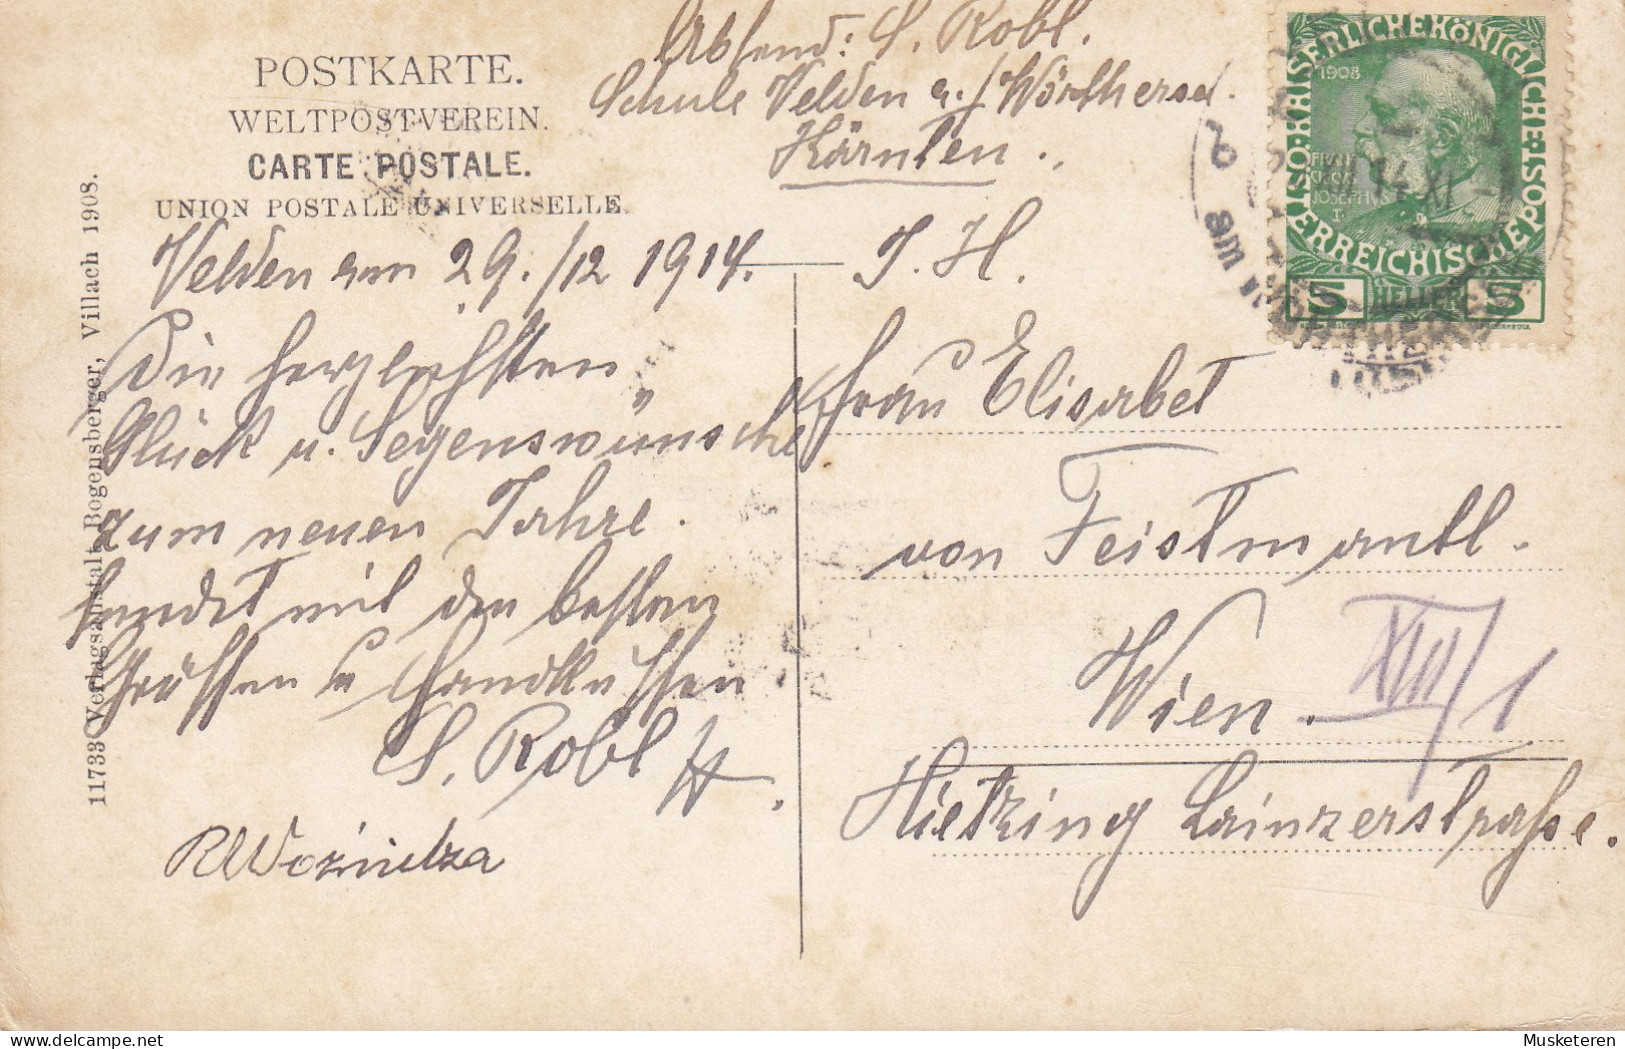 Absend: S. Robl.
Schule Velden a./Wörthersee.
Kärnten.
POSTKARTE.
WELTPOSTVEREIN.
CARTE POSTALE.
UNION POSTALE UNIVERSELLE.
KAISERLICHE KÖNIGLICHE ÖSTERREICHISCHE POST
1908
FRANCISCVS JOSEPHVS I.
5 HELLER 5
14 XI
Velden am 29./12 1914.
Die herzlichsten
Glück u. Segenswünsche
zum neuen Jahre.
sendet mit den besten
Grüssen u Handküssen
S. Robl
11733 Verlagsanstalt Bogensberger, Villach 1908.
I. H.
Frau Elisabet
von Feistmantl.
Wien. XIII/1
Hietzing Lainzerstraße.
Musketeren